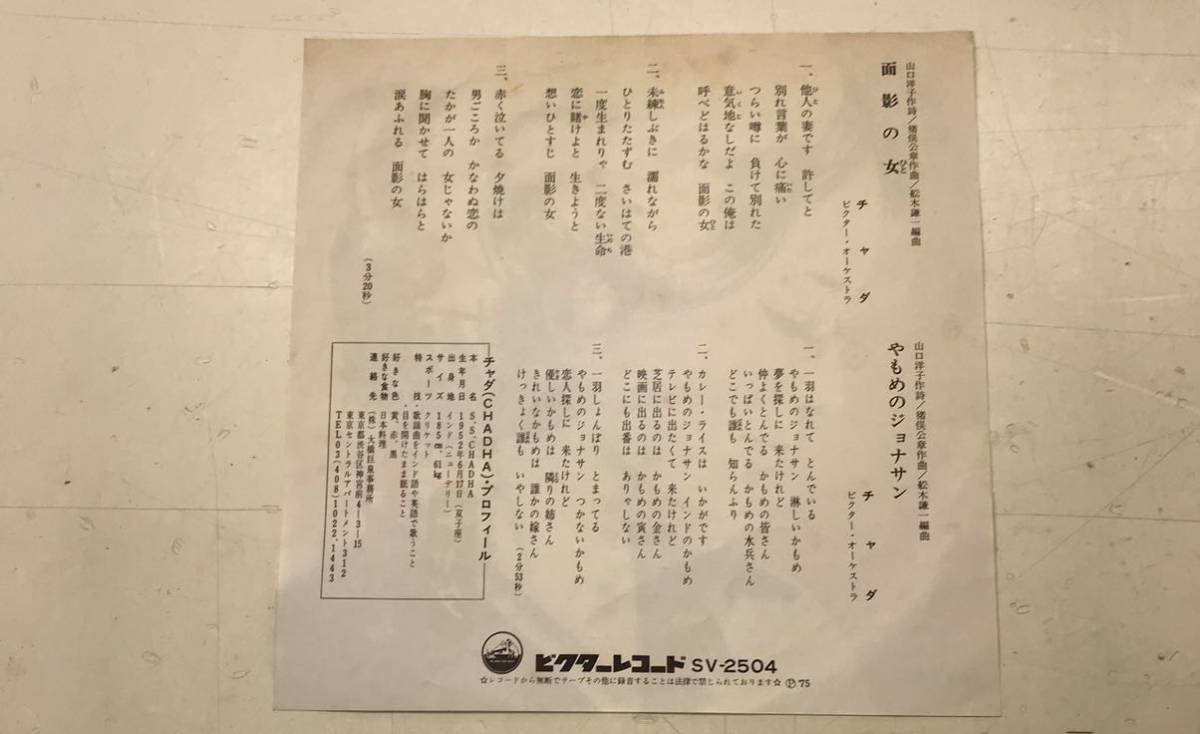 面影の女
ひと
山口洋子作詩／猪俣公章作曲／舩木謙一編曲
チャダ
ビクター・オーケストラ
一、他人の妻です 許してと
別れ言葉が 心に痛い
つらい噂に 負けて別れた
意気地なしだよ この俺は
呼べどはるかな 面影の女
二、未練しぶきに 濡れながら
ひとりたたずむ さいはての港
一度生まれりゃ 二度ない生命
恋に賭けよと 生きようと
想いひとすじ 面影の女
三、赤く泣いてる 夕焼けは
男ごころか かなわぬ恋の
たかが一人の 女じゃないか
胸に聞かせて はらはらと
涙あふれる 面影の女
（3分20秒）
やもめのジョナサン
山口洋子作詩／猪俣公章作曲／舩木謙一編曲
チャダ
ビクター・オーケストラ
一、一羽はなれて とんでいる
やもめのジョナサン 淋しいかもめ
夢を探しに 来たけれど
仲よくとんでる かもめの皆さん
いっぱいとんでる かもめの水兵さん
どこでも誰も 知らんふり
二、カレー・ライスは いかがです
やもめのジョナサン インドのかもめ
テレビに出たくて 来たけれど
芝居に出るのは かもめの金さん
映画に出るのは かもめの寅さん
どこにも出番は ありゃしない
三、一羽しょんぼり とまってる
やもめのジョナサン つかないかもめ
恋人探しに 来たけれど
優しいかもめは 隣りの姉さん
きれいなかもめは 誰かの嫁さん
けっきょく誰も いやしない
（2分53秒）
チャダ（CHADHA）・プロフィール
本名 S、S、CHADHA
生年月日 1952年6月17日（双子座）
出身地 インド（ニューデリー）
サイズ 185cm、61kg
スポーツ クリケット
特技 歌謡曲をインド語や英語で歌うこと
目を開けたまま眠ること
好きな色 黄、赤、黒
好きな食物 日本料理
連絡先 （株）大橋巨泉事務所
東京都渋谷区神宮前4－3－15
東京セントラルアパートメント312
TEL03（408）1022、1443
ビクターレコード SV-2504
☆レコードから無断でテープその他に録音することは法律で禁じられております☆ Ⓟ75